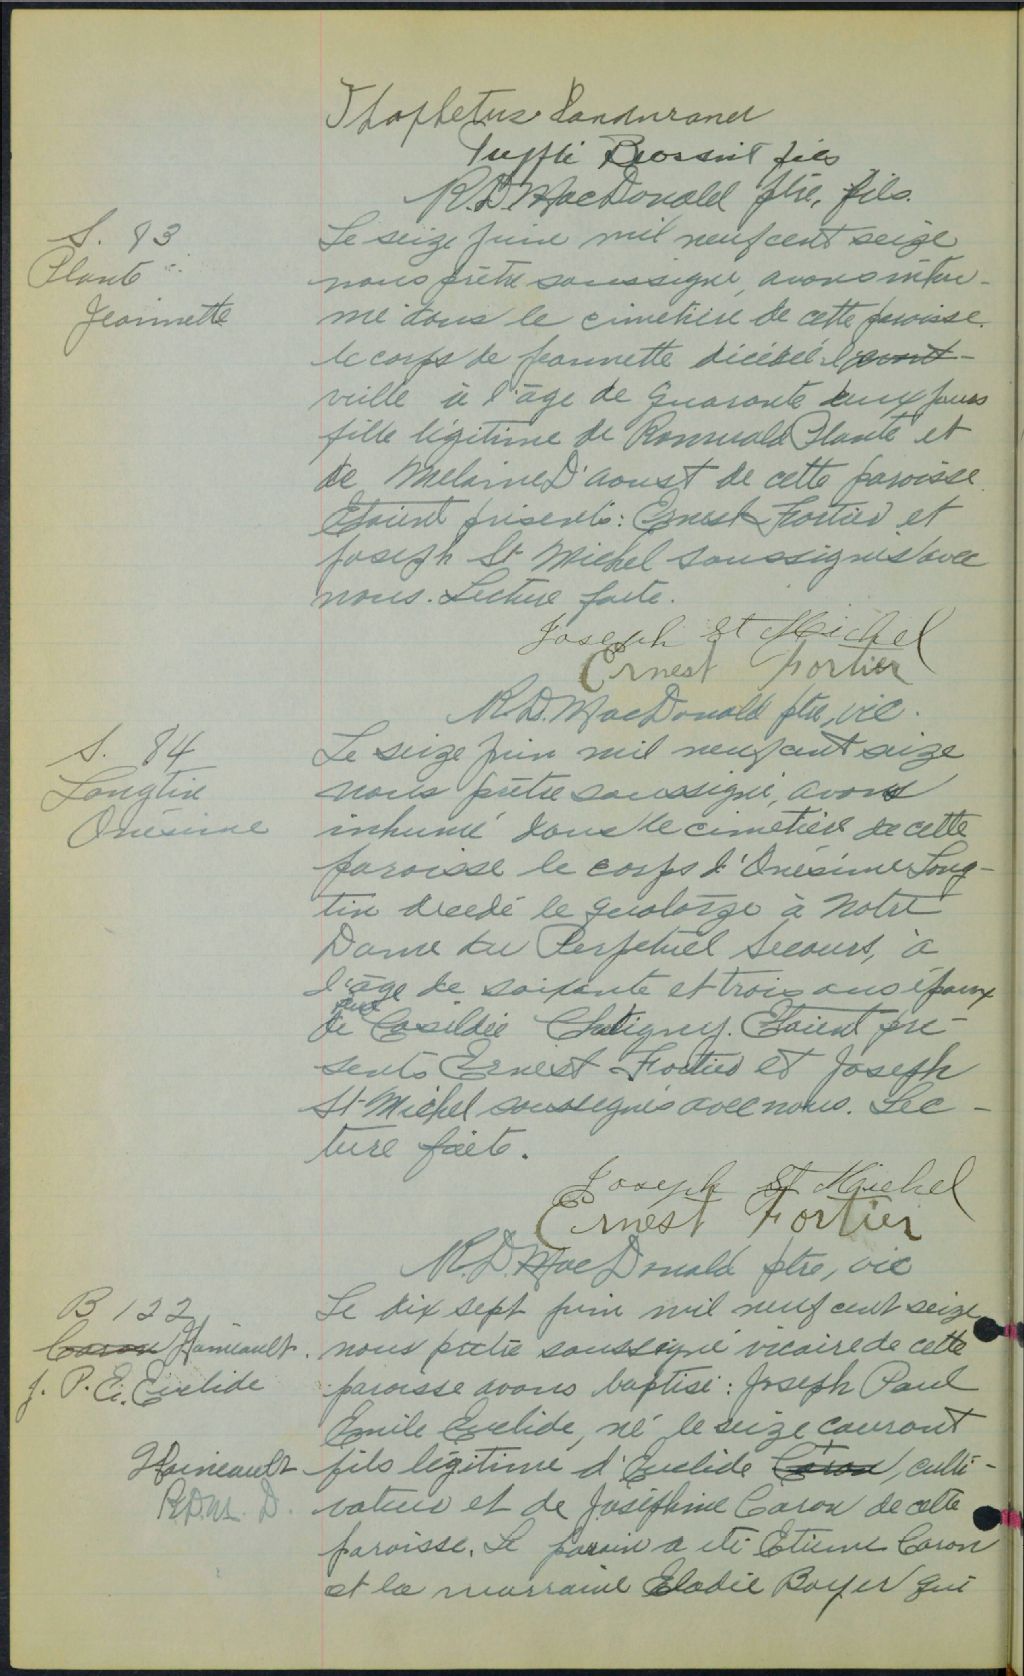 Dandurand
Brossoit fils
R.D. MacDonald ptre, fils.
S. 83
Plante
Jeannette
Le seize juin mil neuf cent seize
nous prêtre soussigné, avons inhu-
mé dans le cimetière de cette paroisse
le corps de Jeannette décédée l'avant-
veille à l'âge de quarante deux jours
fille légitime de Romuald Plante et
de Melaine D'aoust de cette paroisse
Etaient présents: Ernest Fortier et
Joseph St Michel soussignés avec
nous. Lecture faite.
Joseph St Michel
Ernest Fortier
R.D. MacDonald ptre, vic.
S. 84
Longtin
Onésime
Le seize juin mil neuf cent seize
nous prêtre soussigné, avons
inhumé dans le cimetière de cette
paroisse le corps d'Onésime Long-
tin decedé le quatorze à Notre
Dame du Perpétuel Secours, à
l'âge de soixante et trois ans époux
feue
de Casildée Chatigny. Etaient pré-
sents Ernest Fortier et Joseph
St-Michel soussignés avec nous. Lec-
ture faite.
Joseph St Michel
Ernest Fortier
R.D. MacDonald ptre, vic
B 122
Caron Haineault.
J. P. E. Euclide
Le dix sept juin mil neuf cent seize
nous prêtre soussigné vicaire de cette
paroisse avons baptisé: Joseph Paul
Emile Euclide, né le seize courant
Haineault
R.D.M. D.
fils légitime d'Euclide Caron, culti-
vateur et de Joséphine Caron de cette
paroisse. Le parain a été Etienne Caron
et la marraine Elodie Boyer qui